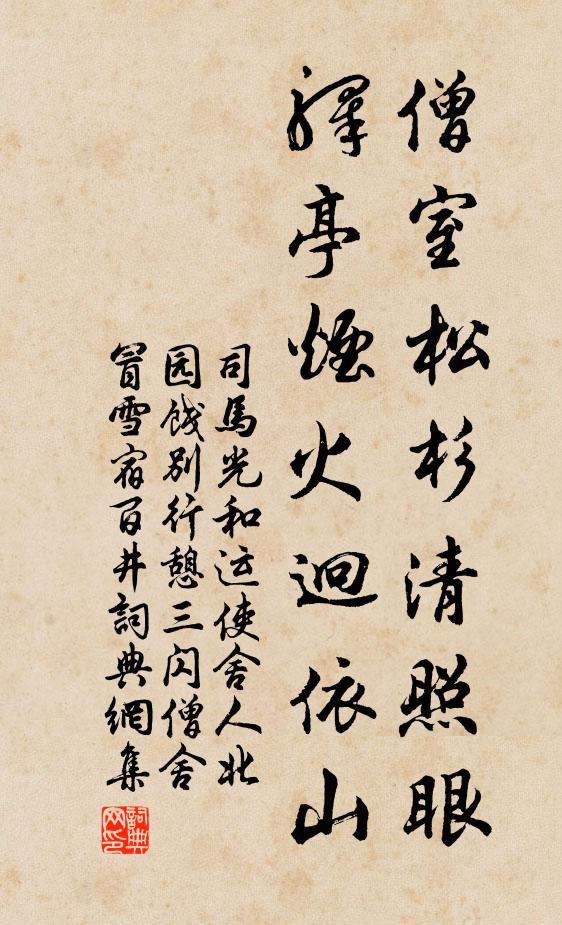 僧室松杉清照眼
驛亭煙火迥依山
司馬光和运使舍人北
园饯别行憩三闪僧舍
冒雪宿百井詞典網集
詞典网印